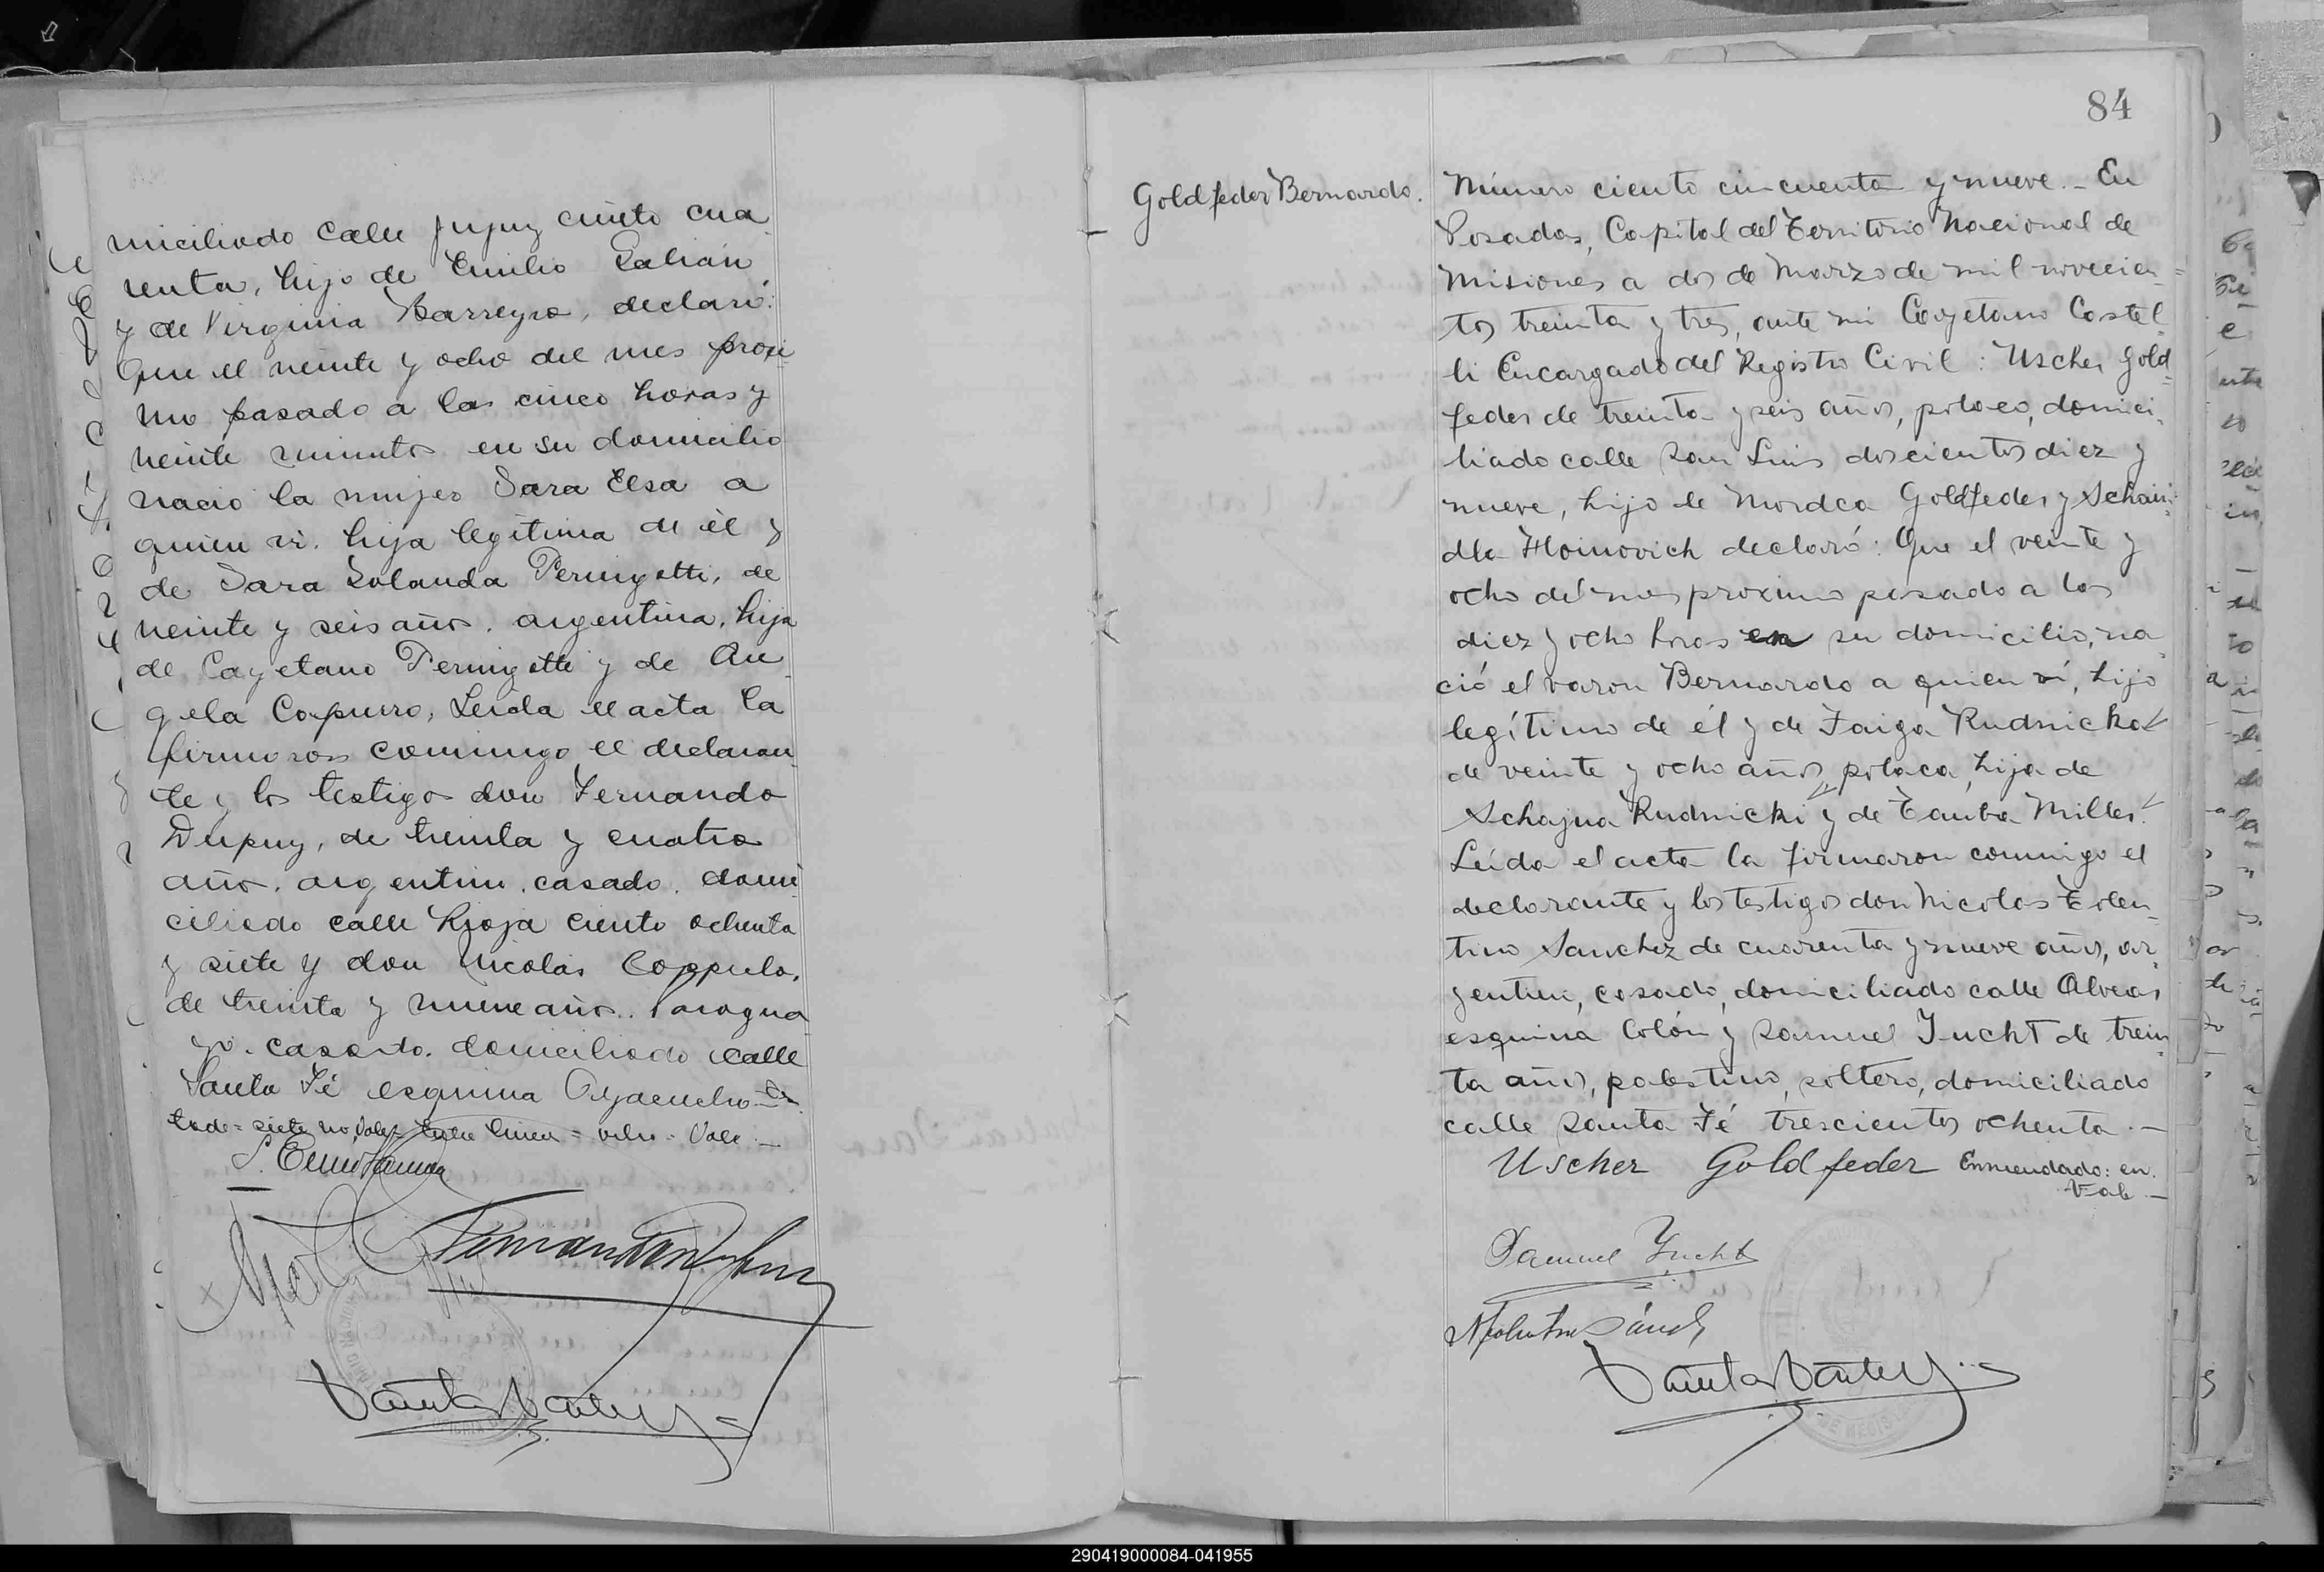 miciliado calle Jujuy ciento cua
renta, hijo de Emilio Galián
y de Virginia Barreyro, declaró:
Que el veinte y ocho del mes proxi
mo pasado a las cinco horas y
veinte minutos en su domicilio
nació la mujer Sara Elsa a
quien ví. hija legítima de él y
de Sara Yolanda Peruyetti, de
veinte y seis años, argentina, hija
de Cayetano Peruyetti y de An
gela Copurro, Leída el acta la
firmaron conmigo el declaran
te y los testigos don Fernando
Dupuy, de treinta y cuatro
años, argentino, casado, domi
ciliado calle Rioja ciento ochenta
y siete y don Nicolás Coppulo,
de treinta y nueve años, Paragua
yo, casado, domiciliado calle
Santa Fé esquina Ayacucho. Es
tado = siete no Vale = Entre linea = ocho = Vale. —
84
Goldfeder Bernardo.
Número ciento cincuenta y nueve. — En
Posadas, Capital del Territorio Nacional de
Misiones a dos de Marzo de mil novecien=
tos treinta y tres, ante mi Cayetano Castel
li Encargado del Registro Civil: Uscher Gold
feder de treinta y seis años, polaco, domici
liado calle San Luis doscientos diez y
nueve, hijo de Mordca Goldfeder y Schain
dla Hoinovich declaró: Que el veinte y
ocho del mes proximo pasado a las
diez y ocho horas en su domicilio, na
ció el varon Bernardo a quien ví, hijo
legítimo de él y de Faiga Rudnicka
de veinte y ocho años, polaca, hija de
Schajna Rudnicki y de Tauba Miller.
Leída el acta la firmaron conmigo el
declarante y los testigos don Nicolas Tolen
tino Sanchez de cuarenta y nueve años, ar
gentino, casado, domiciliado calle Alvear
esquina Colón y Samuel Jucht de trein
ta años, palestino, soltero, domiciliado
calle Santa Fé trescientos ochenta. —
Uscher Goldfeder Enmendado: en.
Vale —
Samuel Jucht
290419000084-041955